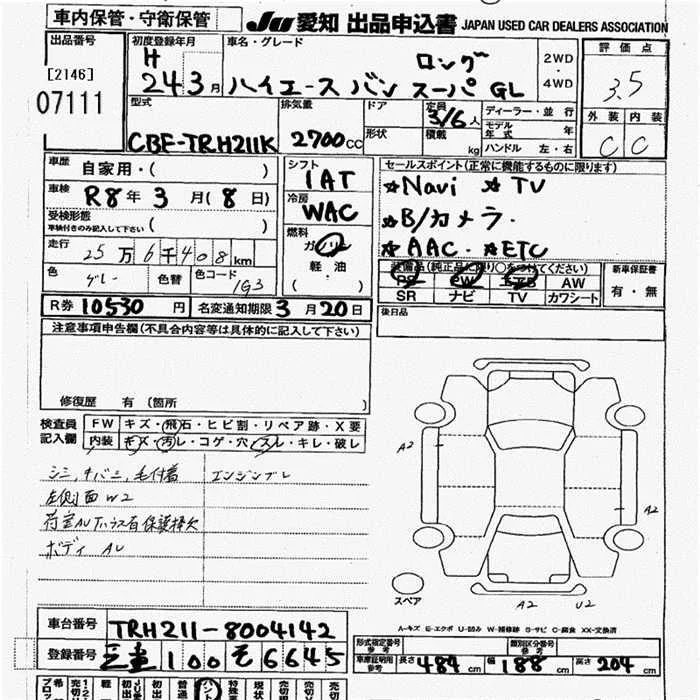 車内保管・守衛保管
JU 愛知 出品申込書 JAPAN USED CAR DEALERS ASSOCIATION
出品番号
[2146]
07111
初度登録年月
H
24 3月
車名・グレード
ロング
ハイエース バン スーパ GL
2WD
・
4WD
評価点
3.5
外装 内装
C C
型式
CBF-TRH211K
排気量
2700cc
ドア
形状
定員
3/6人
積載
kg
ディーラー・並行
モデル年式 年
ハンドル 左・右
車歴
自家用・( )
車検
R8年 3月(8日)
受検形態
車検付きのみ記入して下さい ( )
走行
25万6千408km
色
グレー
色替
色コード
1G3
シフト
1AT
冷房
WAC
燃料
ガソリン
軽・油
( )
セールスポイント(正常に機能するものに限ります)
☆Navi ☆TV
☆B/カメラ.
☆AAC. ☆ETC
装備品(純正品に限り○をつけてください)
PS PW エアB AW
SR ナビ TV カワシート
新車保証書
有・無
R券 10530円
名変通知期限 3月20日
後日品
注意事項申告欄(不具合内容等は具体的に記入して下さい)
修復歴 有(箇所 )
検査員
記入欄
FW キズ・飛石・ヒビ割・リペア跡・X要
内装 キズ・汚レ・コゲ・穴・スレ・キレ・破レ
シミ,チバシ,毛付着
エンジンブレ
左側面W2
ボディ AU
A2
A2
A2
U2
スペア
A-キズ E-エクボ U-凹み W-補修跡 S-サビ C-腐食 XX-交換済
車台番号
TRH211-8004142
登録番号
三重 100 そ 6645
形式指定番号
参考
類別区分番号
参考
車庫証明用
参考
長さ 484cm
幅 188cm
高さ 204cm